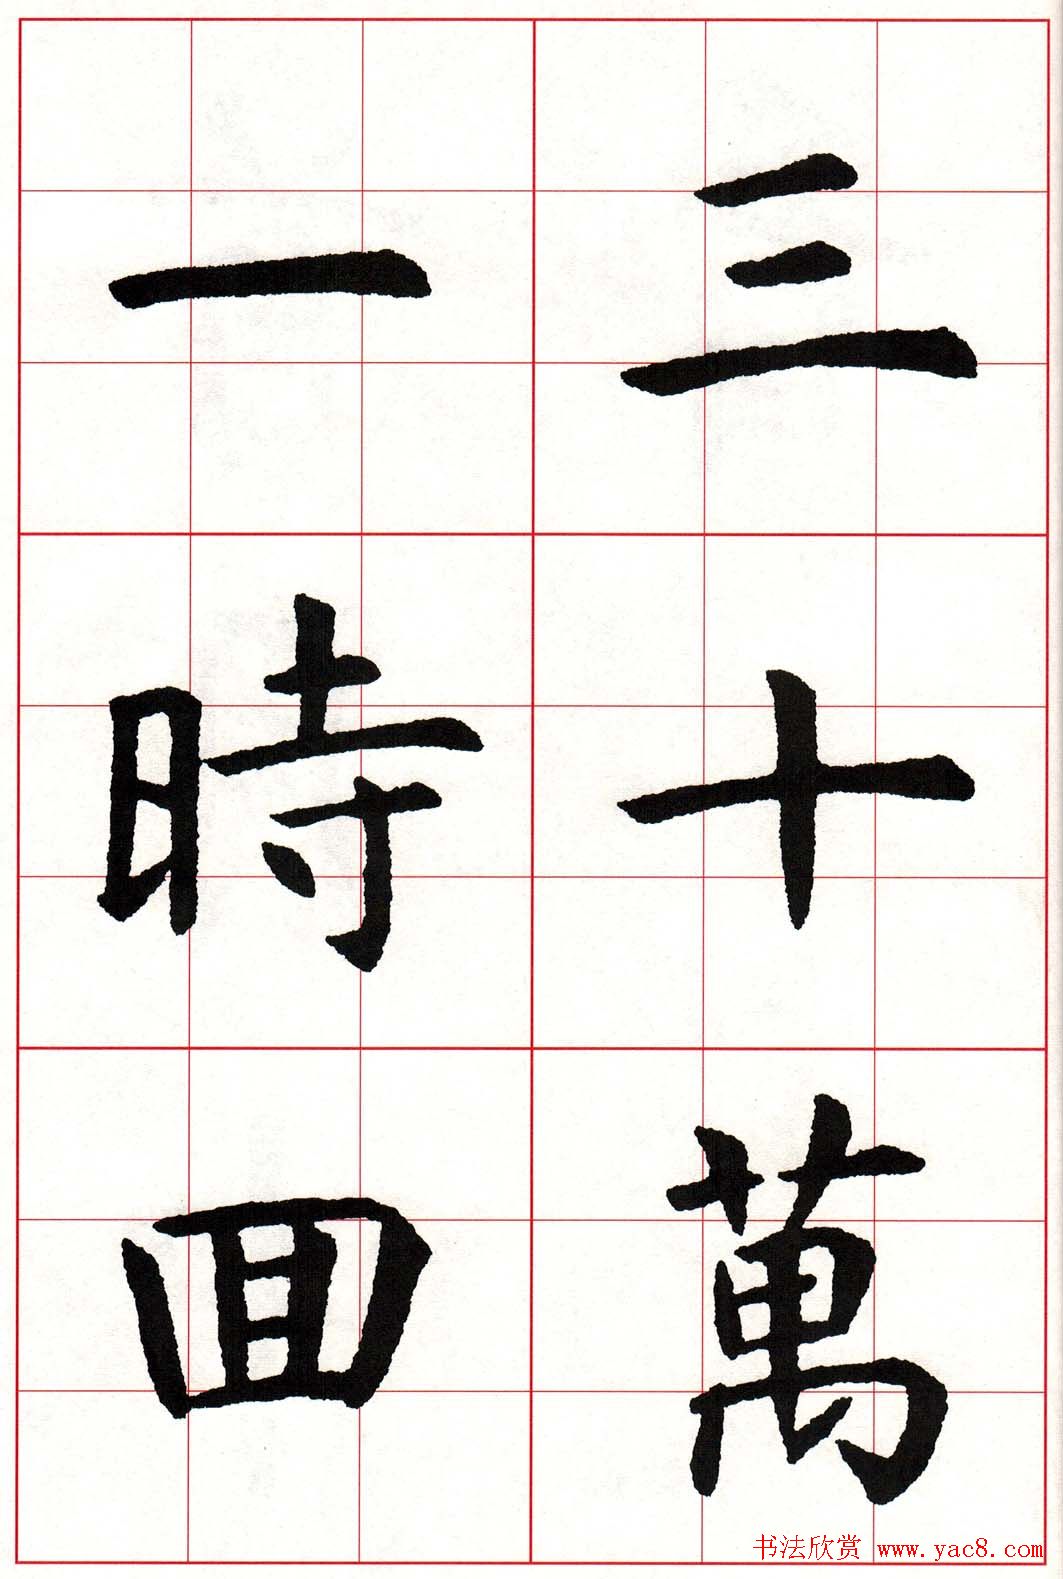 三十萬
一時囬
书法欣赏 www.yac8.com